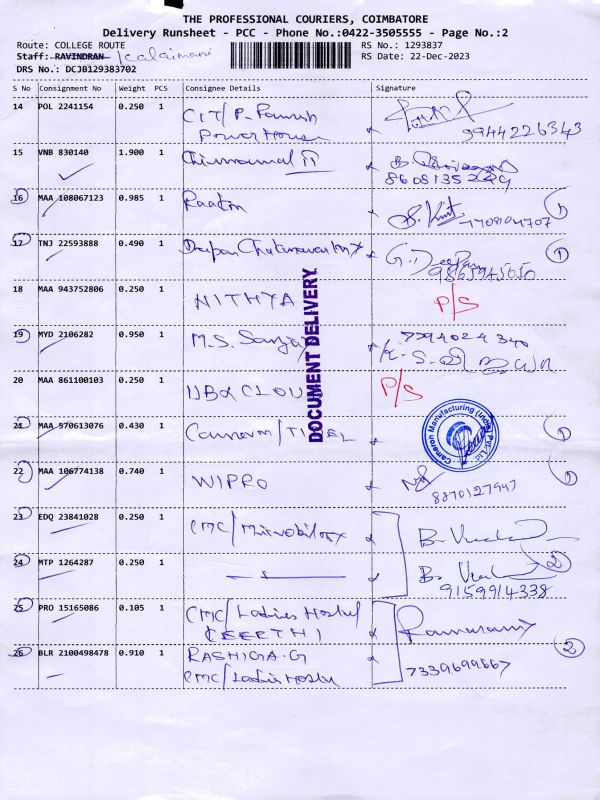 THE PROFESSIONAL COURIERS, COIMBATORE
Delivery Runsheet - PCC - Phone No.:0422-3505555 - Page No.:2
Route: COLLEGE ROUTE RS No.: 1293837
Staff: RAVINDRAN Kalaimani RS Date: 22-Dec-2023
DRS No.: DCJB129383702
S No Consignment No Weight PCS Consignee Details Signature
14 POL 2241154 0.250 1 CIT/P.
Power House 9944226343
15 VNB 830140 1.900 1
16 MAA 108067123 0.985 1 1
17 TNJ 22593888 0.490 1 Deepan G. Deepan 1
9865945050
18 MAA 943752806 0.250 1 NITHYA P/S
19 MYD 2106282 0.950 1 M.S. Sanjay
20 MAA 861100103 0.250 1 P/S
DOCUMENT DELIVERY
21 MAA 570613076 0.430 1 Cameron/TIDEL Cameron Manufacturing (India) Pvt. Ltd. 1
22 MAA 106774138 0.740 1 WIPRO 8870127947 1
23 EDQ 23841028 0.250 1 CMC/Microbiology
24 MTP 1264287 0.250 1 2
9159914338
25 PRO 15165086 0.105 1 CMC/Ladies Hostel
KEERTHI
26 BLR 2100498478 0.910 1 RASHIGA.G 7339699667 2
CMC/Ladies Hostel